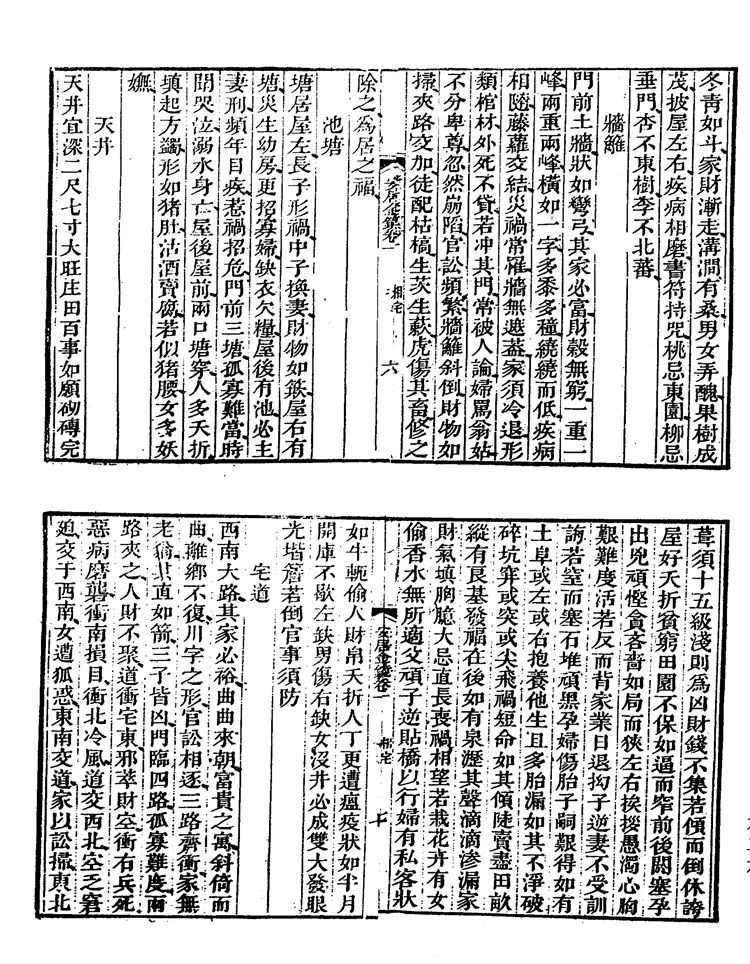 冬青如斗家財漸走溝澗有桑男女弄醜果樹成
茂披屋左右疾病相磨書符持咒桃忌東園柳忌
垂門杏不東樹李不北蕃
牆籬
門前土牆狀如彎弓其家必富財穀無窮一重一
峰兩重兩峰橫如一字多黍多種繞繞而低疾病
相隨藤蘿交結災禍常罹牆無遮蓋家須冷退形
類棺材外死不貸若冲其門常被人論婦罵翁姑
不分卑尊忽然崩陷官訟頻繁牆籬斜倒財物如
掃夾路交加徒配枯槁生茨生蔌虎傷其畜修之
安居金鏡卷一 相宅 六
除之為居之福
池塘
塘居屋左長子形禍中子換妻財物如簸屋右有
塘災生幼房更招寡婦缺衣欠糧屋後有池必主
妻刑頻年目疾惹禍招危門前三塘孤寡難當時
聞哭泣溺水身亡屋後屋前兩口塘穿人多夭折
填起方蠲形如猪肚沽酒賣腐若似猪腰女多妖
嫵
天井
天井宜深二尺七寸大旺庄田百事如願砌磚完
葺須十五級淺則為凶財錢不集若傾而倒休誇
屋好夭折貧窮田園不保如逼而窄前後閼塞孕
出兇頑慳貪吝嗇如局而狹左右挨拶愚濁心胸
艱難度活若反而背家業日退拗子逆妻不受訓
誨若窒而塞石堆頑黑孕婦傷胎子嗣艱得如有
土阜或左或右抱養他生且多胎漏如其不淨破
碎坑穽或突或尖飛禍短命如其傾陡賣盡田畝
縱有艮基發福在後如有泉瀝其聲滴滴滲漏家
財氣填胸臆大忌直長喪禍相望若栽花卉有女
偷香水無所適父頑子逆貼橋以行婦有私客狀
安居金鏡卷一 相宅 七
如牛軛偷人財帛夭折人丁更遭瘟疫狀如半月
開庫不歇左缺男傷右缺女沒井必成雙大發眼
光堦簷若倒官事須防
宅道
西南大路其家必裕曲曲來朝富貴之寓斜倚而
曲離鄉不復川字之形官訟相逐三路齊衝家無
老翁其直如箭三子皆凶門臨四路孤寡難度兩
路夾之人財不聚道衝宅東邪萃財空衝右兵死
惡病磨聾衝南損目衝北冷風道交西北空乏窘
廹交于西南女遭狐惑東南交道家以訟掃東北